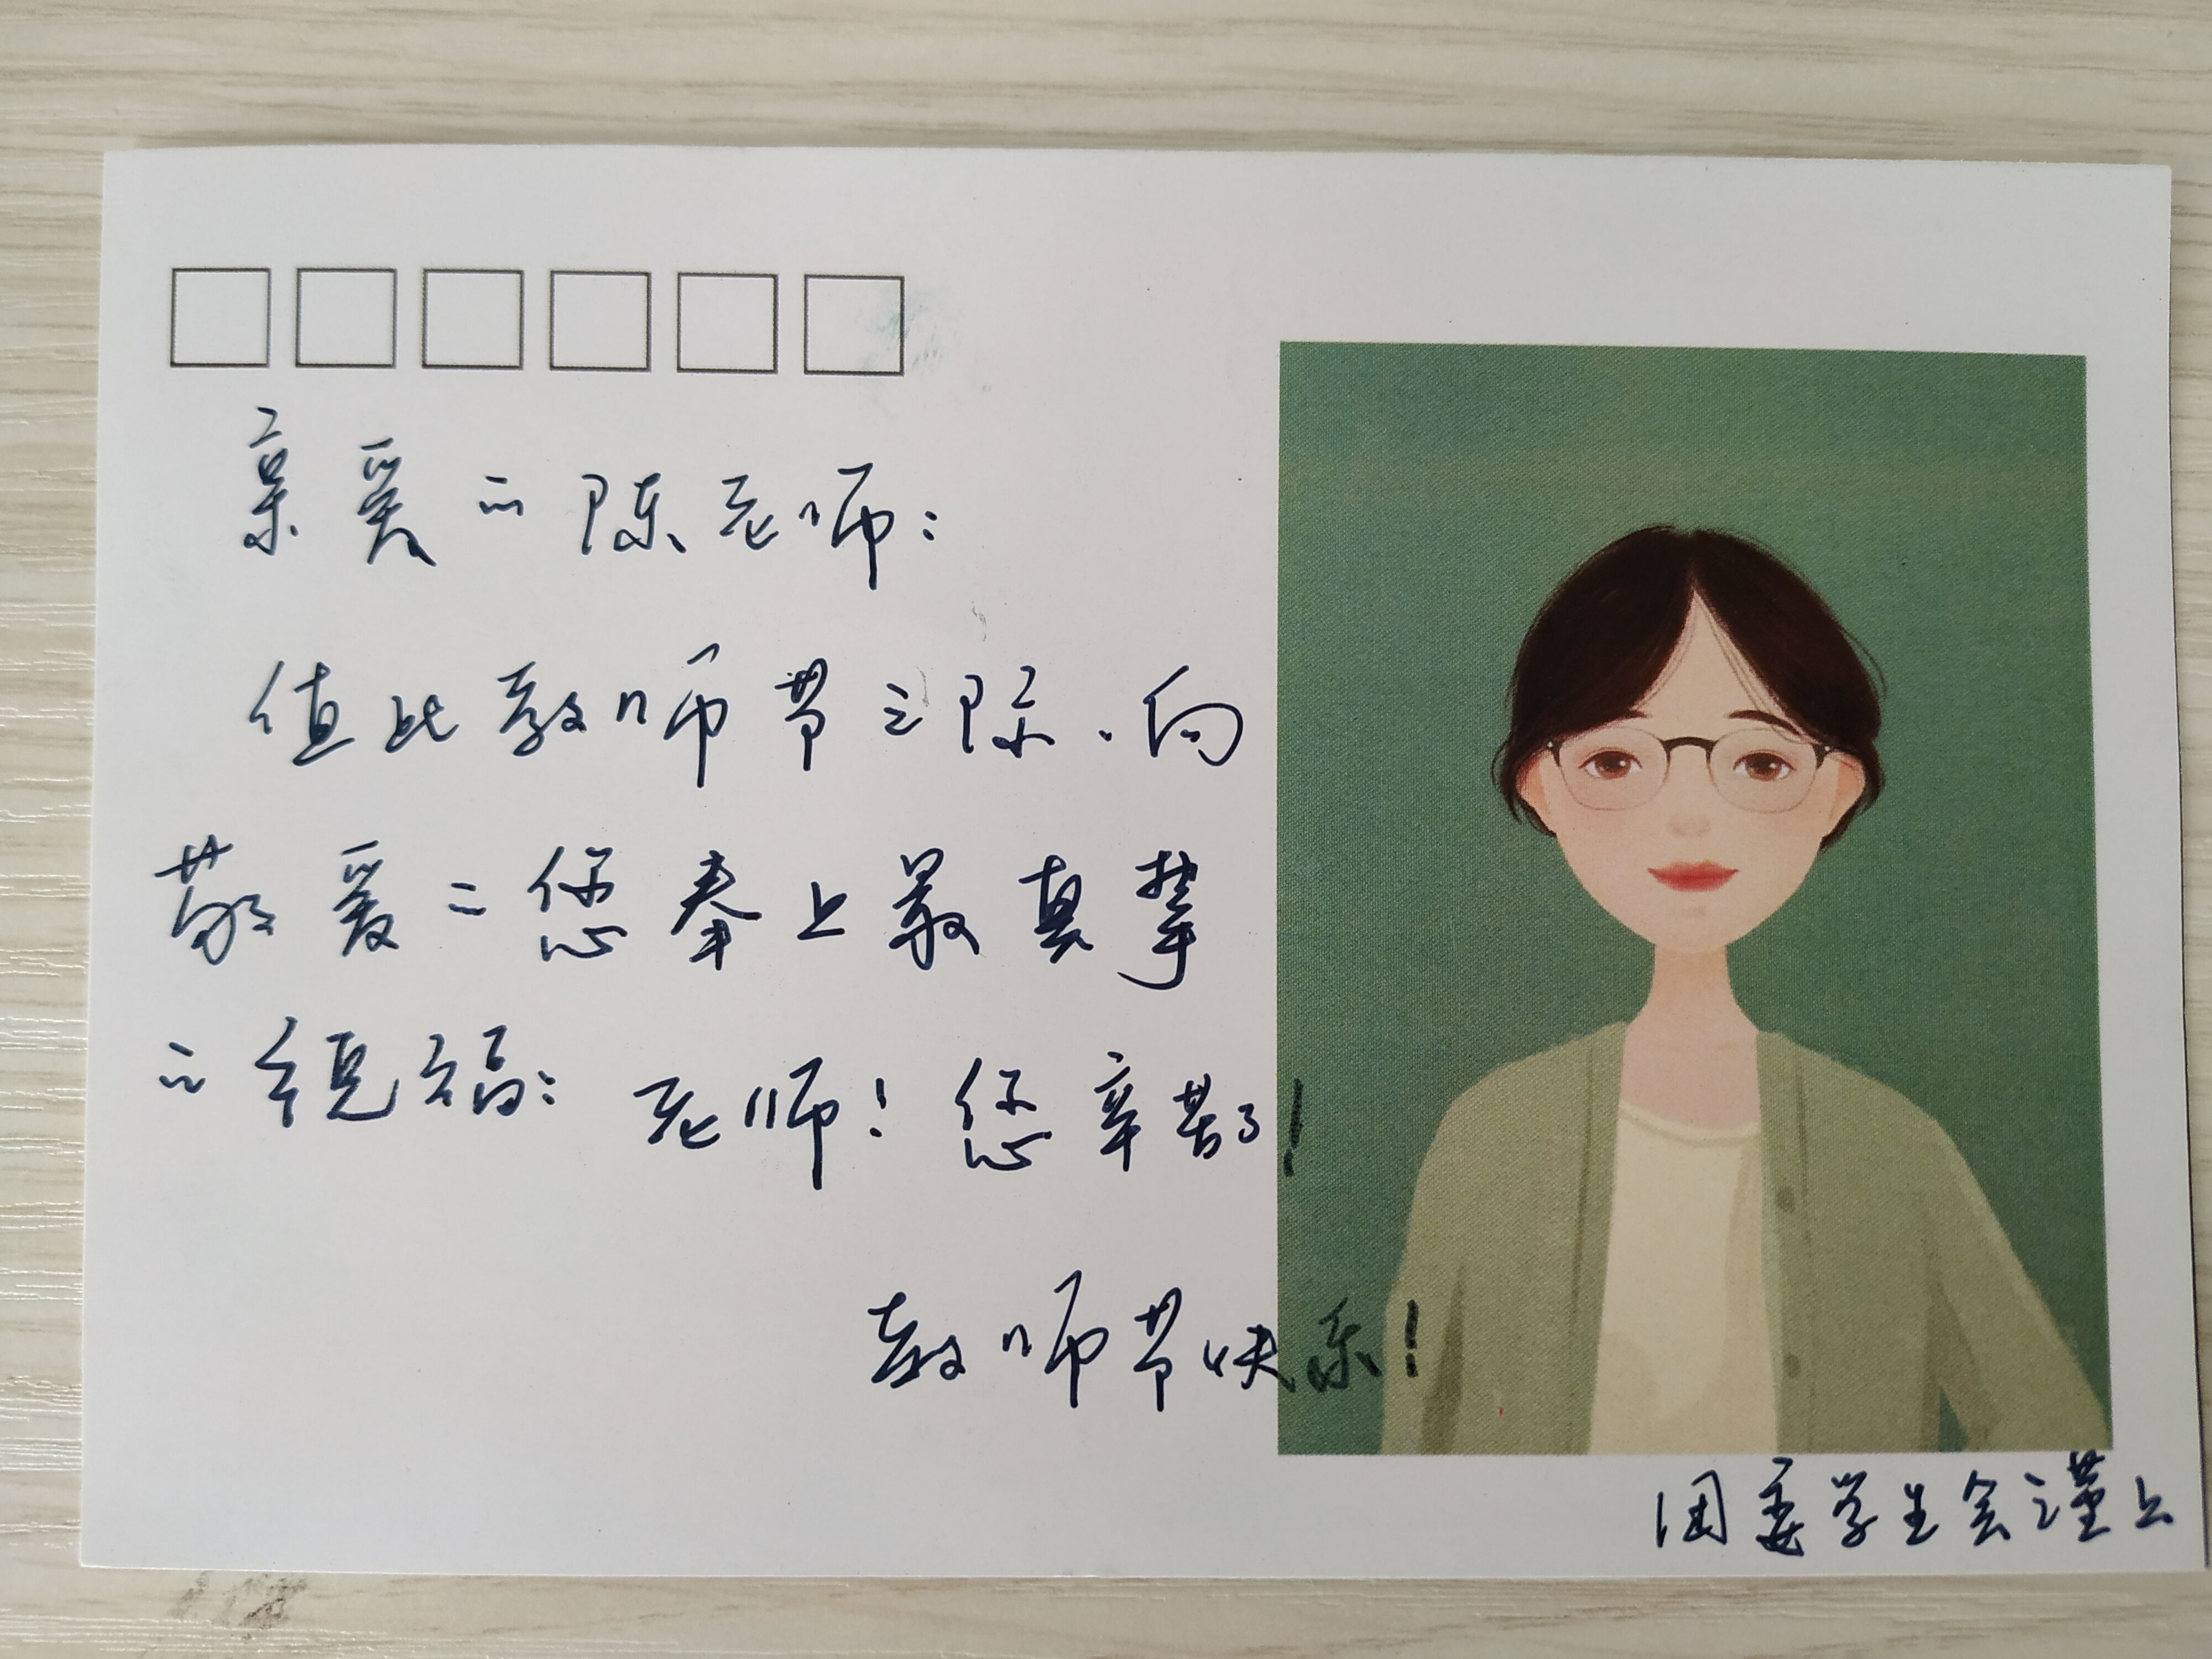 亲爱的陈老师：
值此教师节之际，向
敬爱的您奉上最真挚
的祝福：老师！您辛苦了！
教师节快乐！
团委学生会谨上